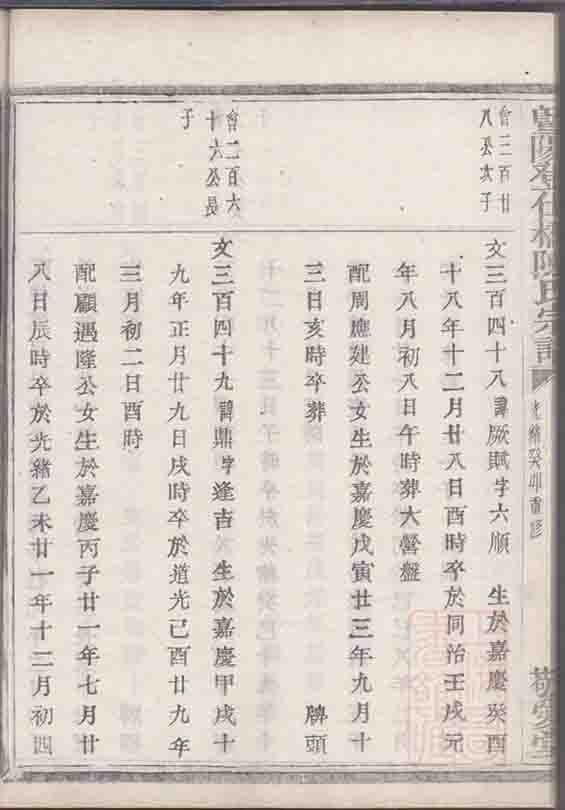 暨陽登仕橋陳氏宗譜
光緒癸卯重修
敬愛堂
會三百廿
八公次子
文三百四十八諱厥賦字六順 生於嘉慶癸酉
十八年十二月廿八日酉時卒於同治壬戌元
年八月初八日午時葬大營盤
配周應建公女生於嘉慶戊寅廿三年九月十
三日亥時卒葬 牌頭
會二百六
十六公長
子
文三百四十九諱鼎字逢吉 生於嘉慶甲戌十
九年正月廿九日戌時卒於道光己酉廿九年
三月初二日酉時
配顧遇隆公女生於嘉慶丙子廿一年七月廿
八日辰時卒於光緒乙未廿一年十二月初四